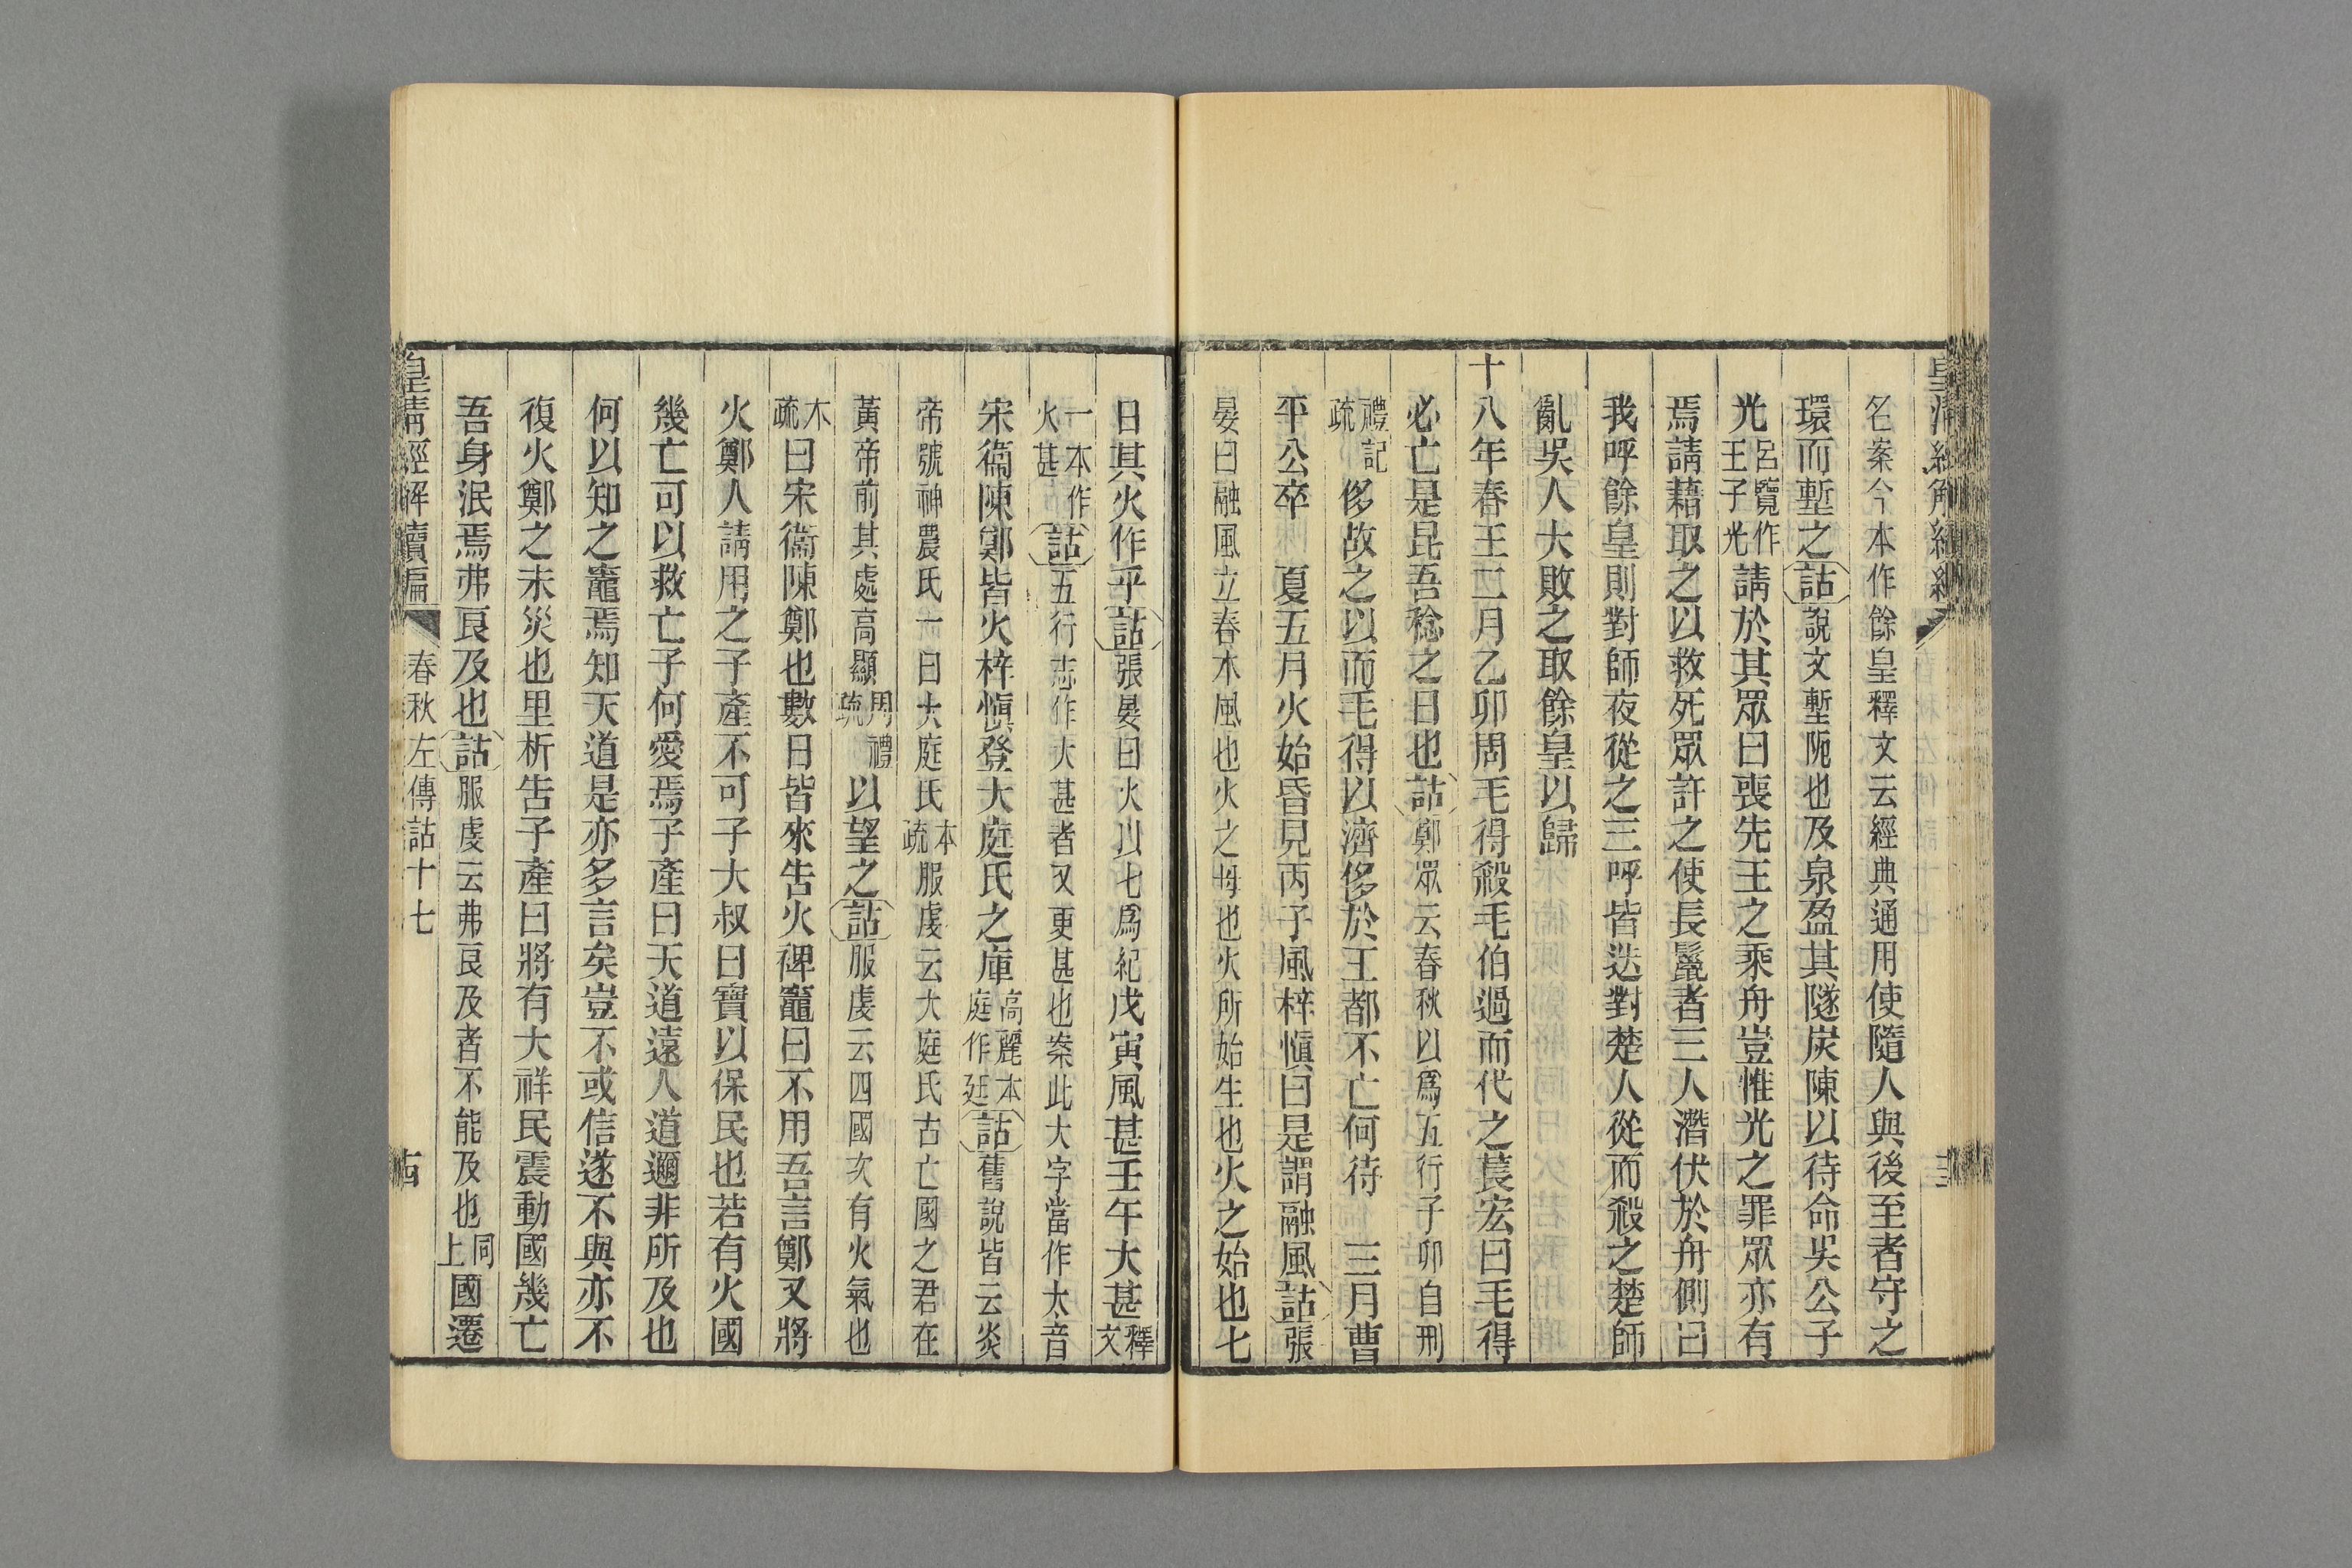 名案今本作餘皇釋文云經典通用使隨人與後至者守之
環而塹之詁說文塹阬也及泉盈其隧炭陳以待命吳公子
光呂覽作王子光請於其眾曰喪先王之乘舟豈惟光之罪眾亦有
焉請藉取之以救死眾許之使長鬛者三人潛伏於舟側曰
我呼餘皇則對師夜從之三呼皆迭對楚人從而殺之楚師
亂吳人大敗之取餘皇以歸
十八年春王二月乙卯周毛得殺毛伯過而代之萇宏曰毛得
必亡是昆吾稔之日也詁鄭眾云春秋以為五行子卯自刑
禮記疏侈故之以而毛得以濟侈於王都不亡何待 三月曹
平公卒 夏五月火始昏見丙子風梓慎曰是謂融風詁張
晏曰融風立春木風也火之母也火所始生也火之始也七
日其火作乎詁張晏曰火以七爲紀戊寅風甚壬午大甚釋文
一本作火甚詁五行志作大甚者又更甚也案此大字當作太音
宋衞陳鄭皆火梓慎登大庭氏之庫高麗本庭作廷詁舊說皆云炎
帝號神農氏一曰大庭氏本疏服虔云大庭氏古亡國之君在
黃帝前其處高顯周禮疏以望之詁服虔云四國次有火氣也
本疏曰宋衞陳鄭也數日皆來告火裨竈曰不用吾言鄭又將
火鄭人請用之子產不可子大叔曰寶以保民也若有火國
幾亡可以救亡子何愛焉子產曰天道遠人道邇非所及也
何以知之竈焉知天道是亦多言矣豈不或信遂不與亦不
復火鄭之未災也里析告子產曰將有大祥民震動國幾亡
吾身泯焉弗良及也詁服虔云弗良及者不能及也同上國遷
皇清經解續編 春秋左傳詁十七 十四